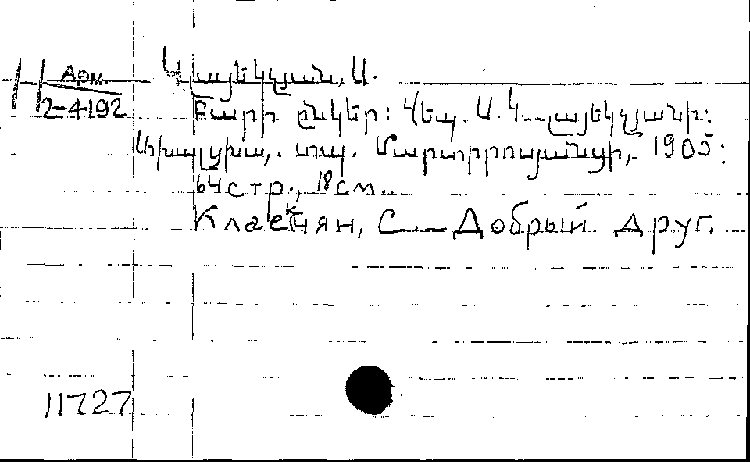 Арм.
2-4192
Կլայեկչյան, Ս.
Բարի ընկեր: Վեպ. Ս. Կլայեկչյանի:
տպ. Մարտիրոսյանցի, 1905:
64 стр., 18 см.
Клаекчян, С — Добрый друг.
11727